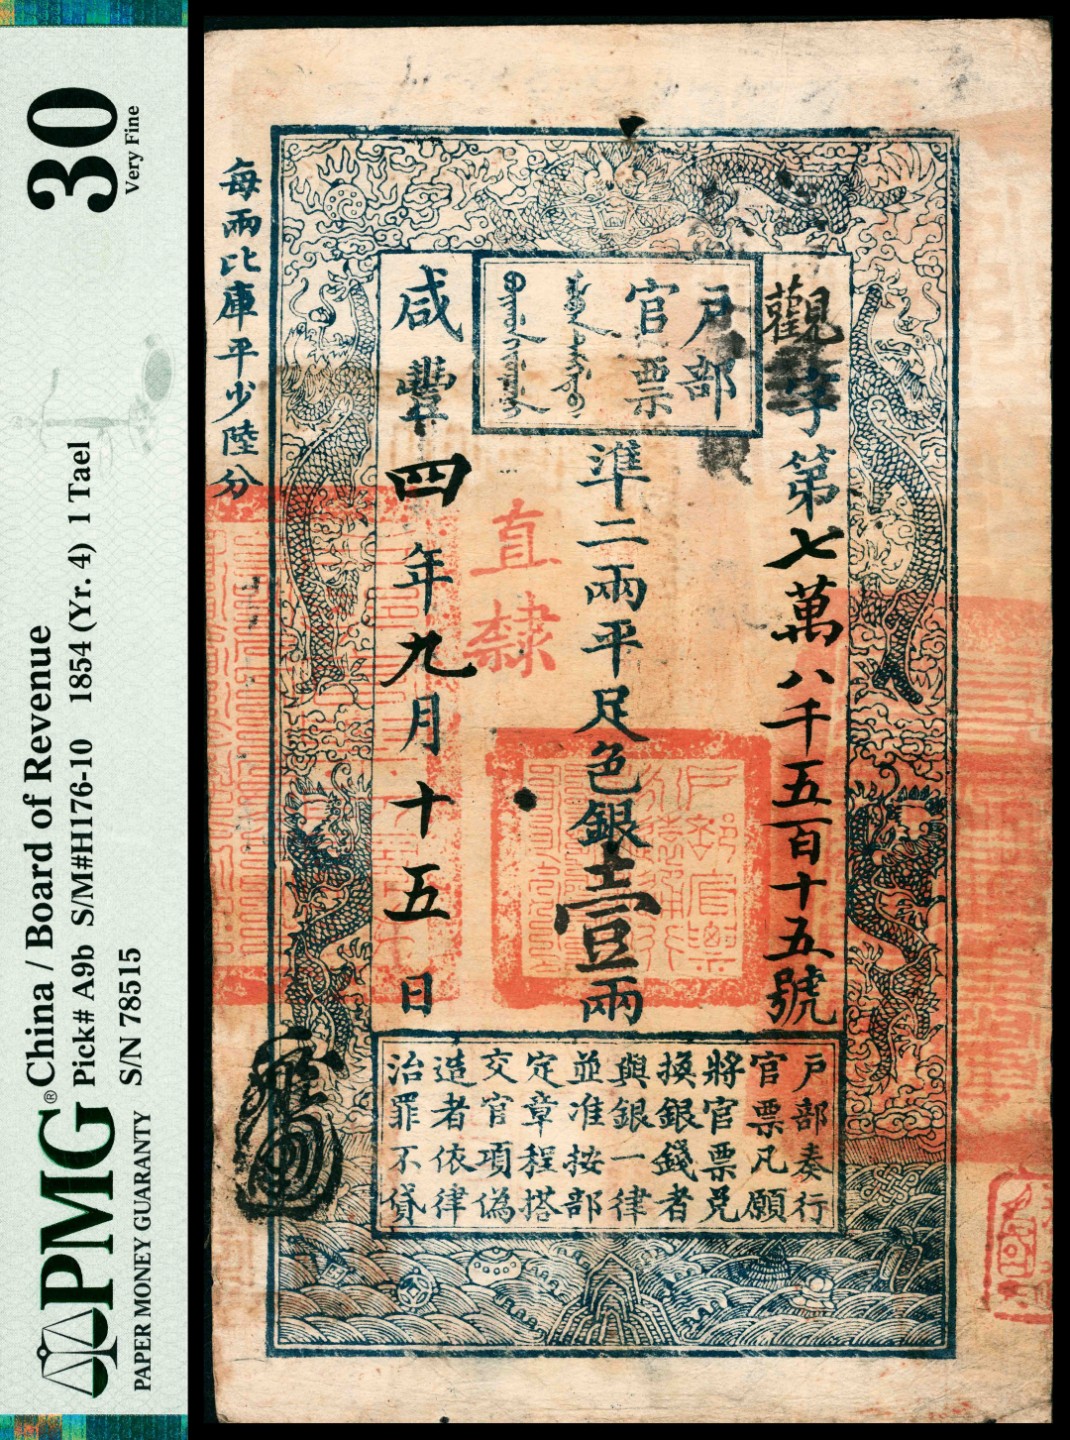 30
Very Fine
China / Board of Revenue
Pick# A9b S/M#H176-10 1854 (Yr. 4) 1 Tael
S/N 78515
PMG®
PAPER MONEY GUARANTY
户部
官票
觀字第七萬八千五百十五號
準二兩平足色銀壹兩
直隸
咸豐四年九月十五日
每兩比庫平少陸分
户部奏行
官票凡願
將官票兑
換銀錢者
與銀一律
並准按部
定章程搭
交官項偽
造者依律
治罪不貸